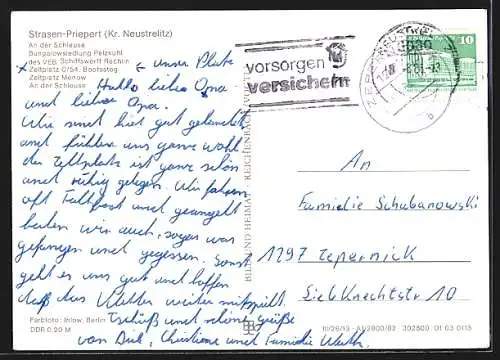 Strasen-Priepert (Kr. Neustrelitz)
An der Schleuse
Bungalowsiedlung Pelzkuhl
des VEB Schiffswerft Rechlin
Zeltplatz C/54, Bootssteg
Zeltplatz Menow
An der Schleuse
x unser Platz
x
Hallo liebe Oma
und lieber Opa.
Wir sind hier gut gelandet
und fühlen uns ganz wohl
der Zeltplatz ist ganz schön
und ruhig gelegen. Wir fahren
oft Faltboot und geangelt
haben wir auch, sogar was
gefangen und gegessen. Sonst
geht es uns gut und hoffen
daß das Wetter weiter mitspielt.
Tschüß und schöne Grüße
von Christiane und Familie
Farbfoto: Ihlow, Berlin
DDR 0,20 M
BILD UND HEIMAT REICHENBACH
vorsorgen
versichern
10
An
Familie Schubanowski
1297 Zepernick
Liebknechtstr 10
01 03 0115